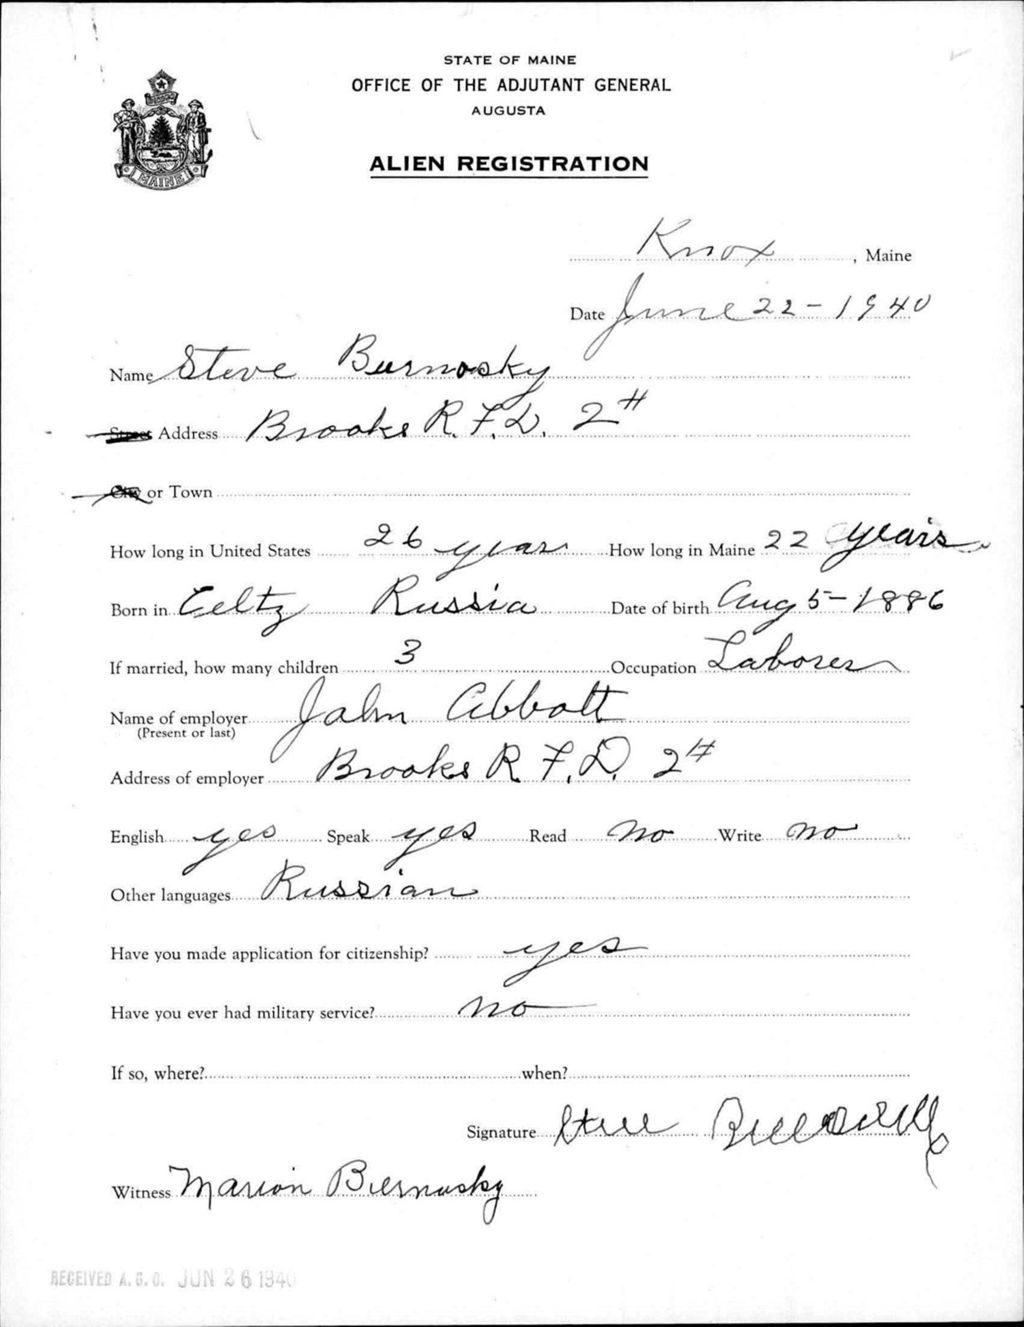 STATE OF MAINE
OFFICE OF THE ADJUTANT GENERAL
AUGUSTA
ALIEN REGISTRATION
MAINE
Knox, Maine
Date June 22-1940
Name Steve Burnosky
Street Address Brooks R.F.D. 2#
City or Town
How long in United States 26 years How long in Maine 22 years
Born in Celtz Russia Date of birth Aug 5-1886
If married, how many children 3 Occupation Laborer
Name of employer John Abbott
(Present or last)
Address of employer Brooks R.F.D. 2#
English yes Speak yes Read no Write no
Other languages Russian
Have you made application for citizenship? yes
Have you ever had military service? no
If so, where? when?
Signature Steve
Witness Marion Biernosky
RECEIVED A.G.O. JUN 26 1940